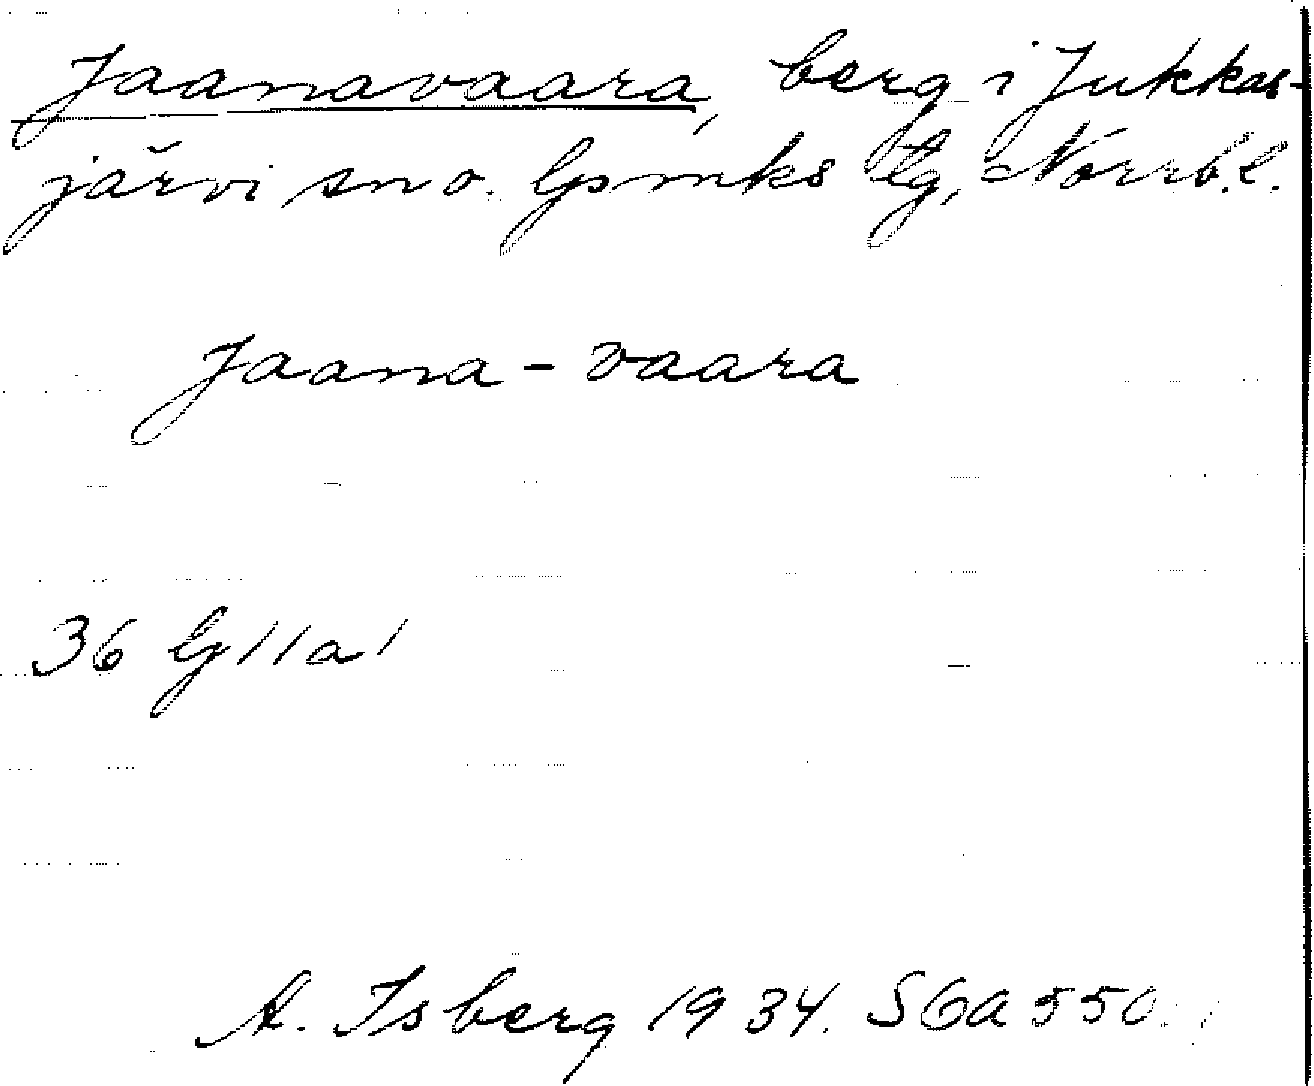 Jaanavaara, berg i Jukkas-
järvi sn o. lpmks tg, Norrb. l.
Jaana-vaara
36 lg 11a1
A. Isberg 1934. S6a550.